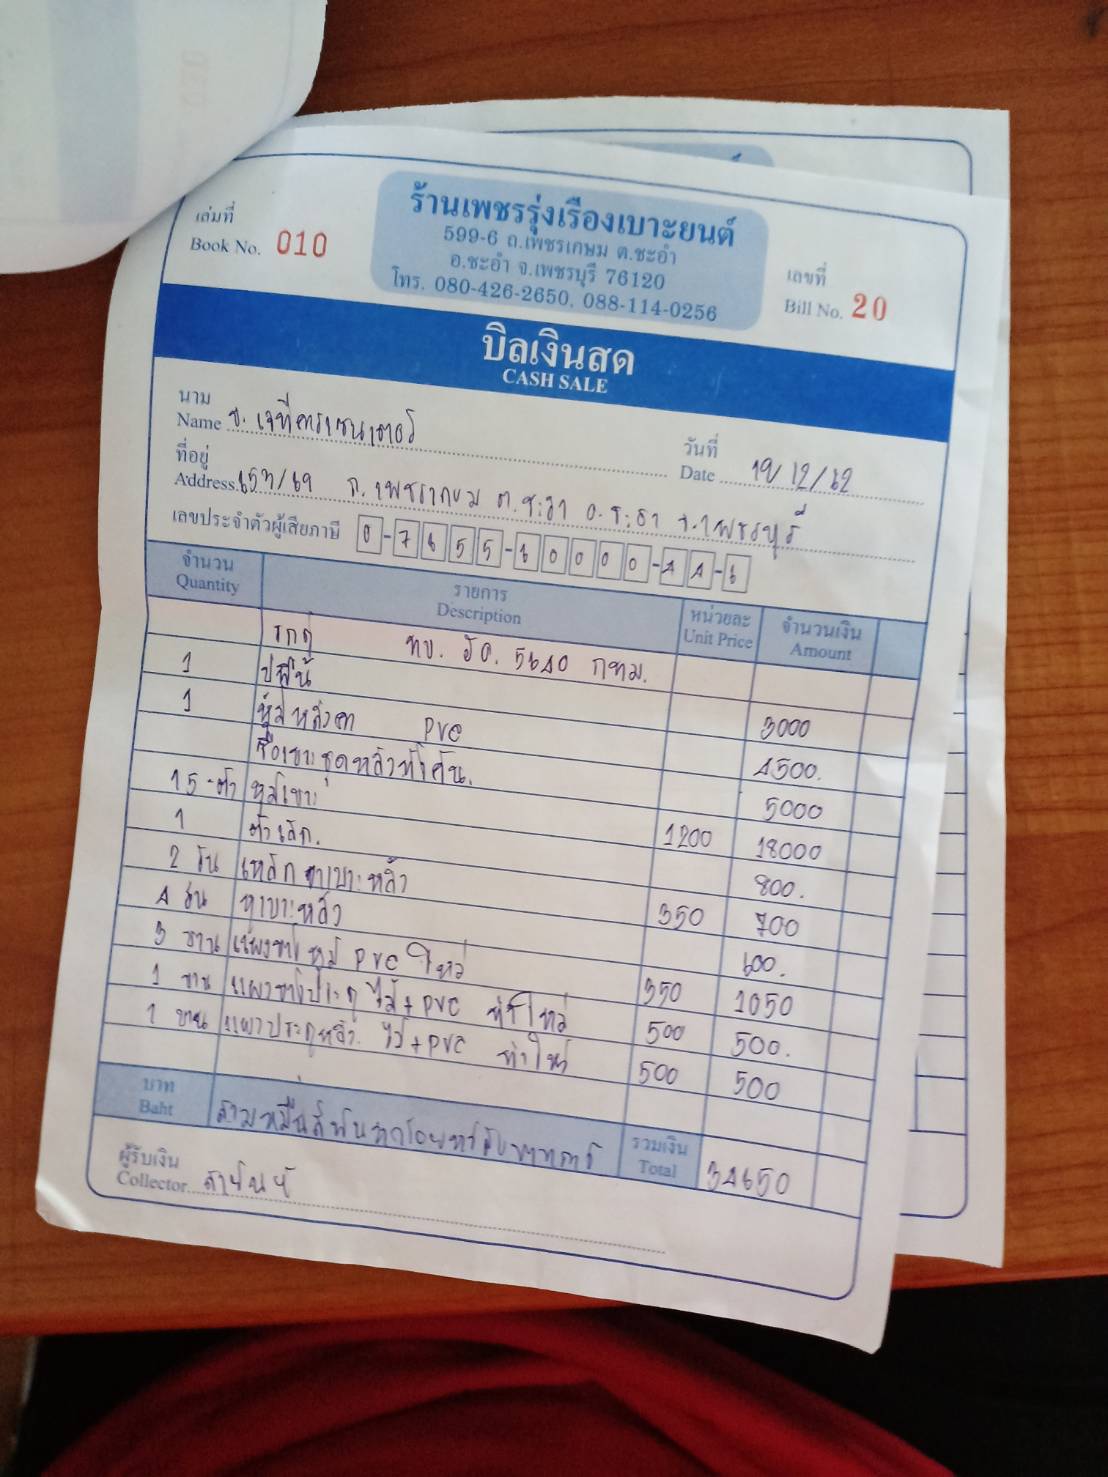 ร้านเพชรรุ่งเรืองเบาะยนต์
599-6 ถ.เพชรเกษม ต.ชะอำ
อ.ชะอำ จ.เพชรบุรี 76120
โทร. 080-426-2650, 088-114-0256
เล่มที่
Book No. 010
เลขที่
Bill No. 20
บิลเงินสด
CASH SALE
นาม
Name
วันที่
Date 19/12/62
ที่อยู่
Address ถ.เพชรเกษม ต.ชะอำ อ.ชะอำ จ.เพชรบุรี
เลขประจำตัวผู้เสียภาษี 0-7655-60000-44-6
จำนวน
Quantity
รายการ
Description
หน่วยละ
Unit Price
จำนวนเงิน
Amount
รถตู้ ทบ. ฮอ. 5640 กทม.
1 ปูพื้น 3000
1 หุ้มหลังคา PVC 4500.
5000
15 ตัว หุ้มเบาะ 1200 18000
1 ตัวเล็ก. 800.
2 อัน 350 700
4 อัน 600.
3 บาน PVC ใหม่ 350 1050
1 บาน ไม้+PVC ทำใหม่ 500 500.
1 บาน แผงประตูหลัง ไม้+PVC ทำใหม่ 500 500
บาท
Baht สามหมื่นสี่พันหกร้อยห้าสิบบาทถ้วน
รวมเงิน
Total 34650
ผู้รับเงิน
Collector